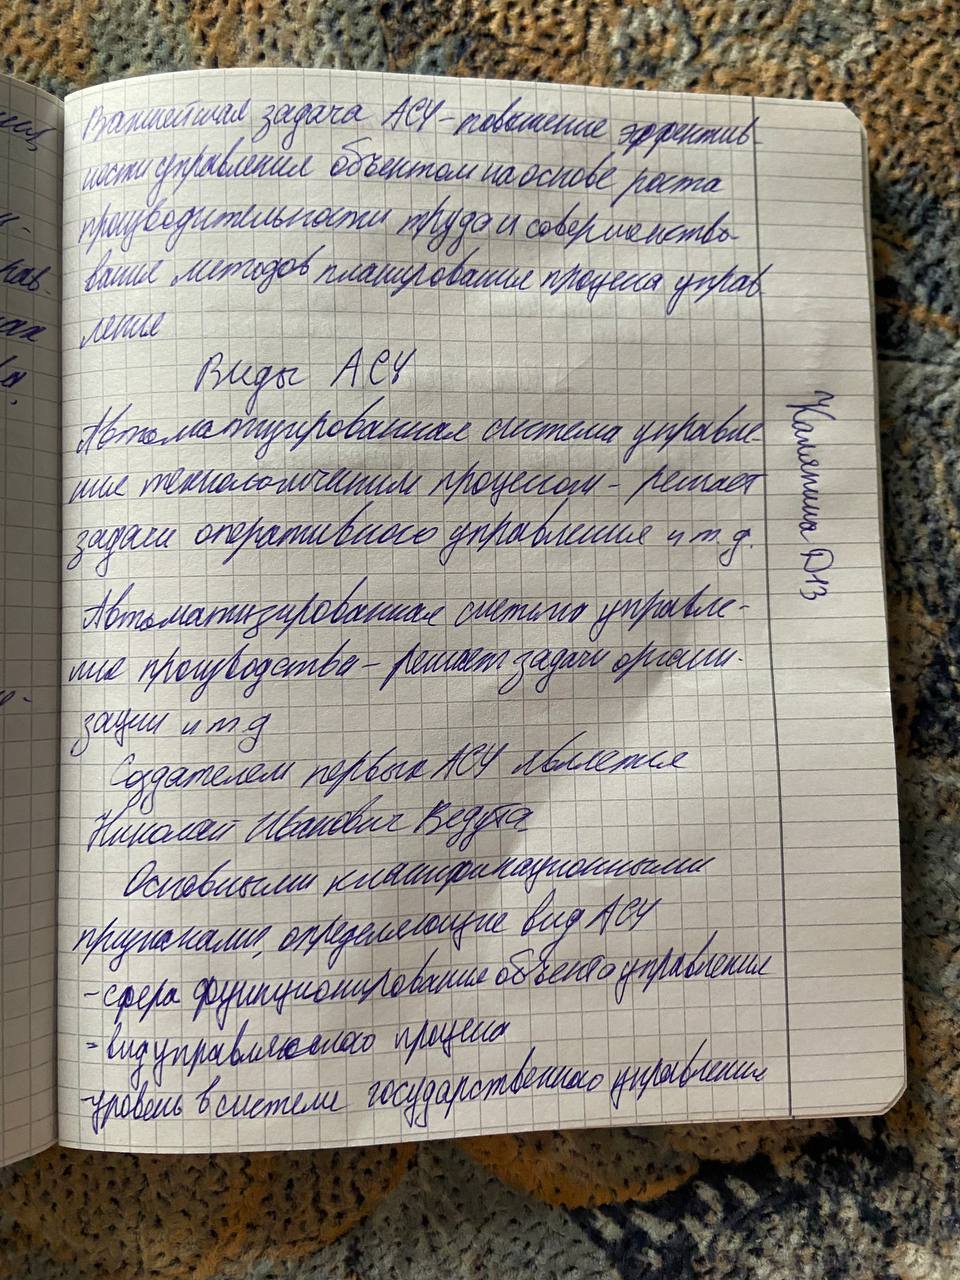 Важнейшая задача АСУ - повышение эффектив-
ности управления объектом на основе роста
производительности труда и совершенство-
вание методов планирования процесса управ-
ление
Виды АСУ
Автоматизированная система управле-
ние технологическим процессом - решает
задачи оперативного управления и т.д.
Автоматизированная система управле-
ние производства - решает задачи органи-
зации и т д
Создателем первых АСУ является
Николай Иванович Ведута
Основными классификационными
признаками, определяющие вид АСУ
- сфера функционирования объекта управления
- вид управляемого процесса
- уровень в системе государственного управления
Д13